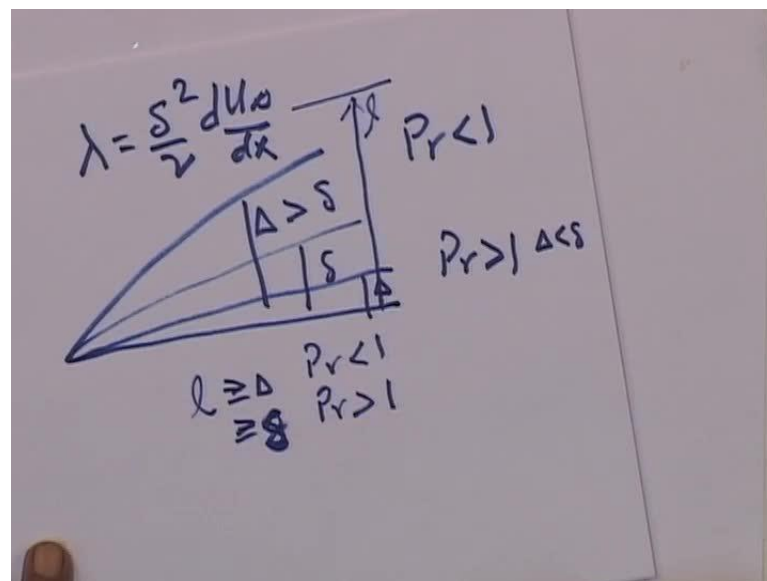 λ = δ²/ν dU∞/dx
l
Pr < 1
Δ > δ
δ
Δ
Pr > 1 Δ < δ
l ≥ Δ Pr < 1
≥ δ Pr > 1